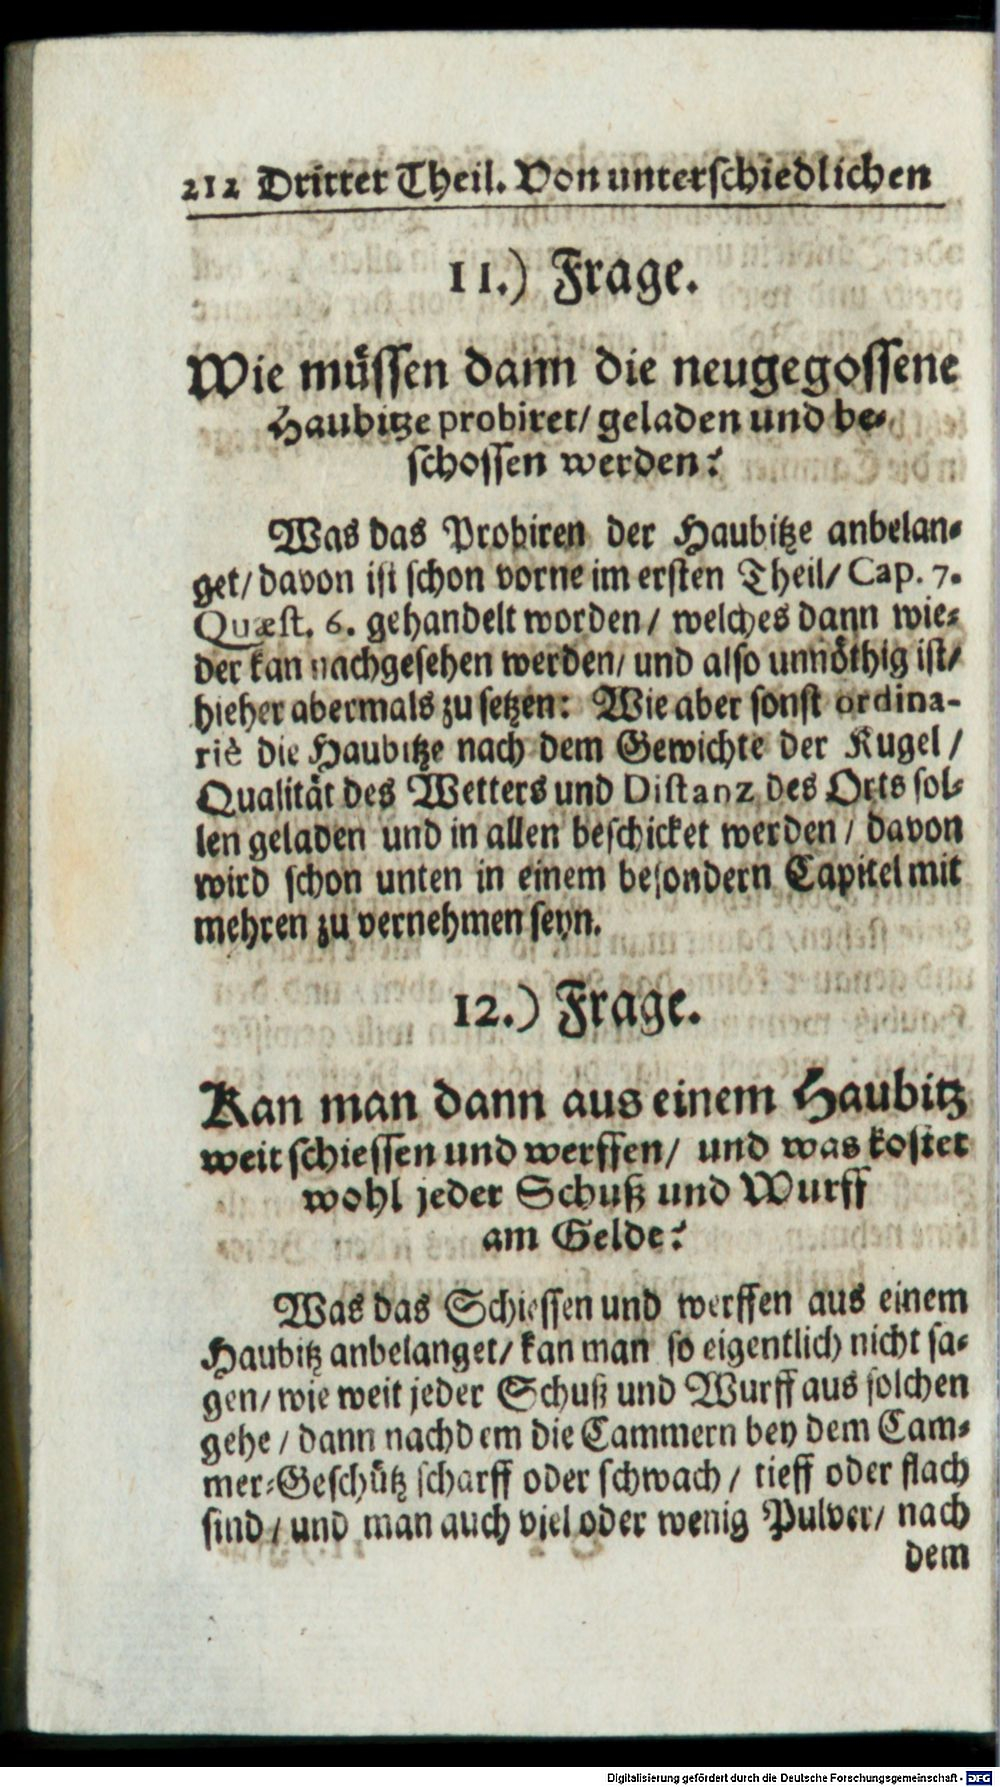 212 Dritter Theil. Von unterschiedlichen
11.) Frage.
Wie müssen dann die neugegossene
Haubitze probiret/ geladen und be-
schossen werden?
Was das Probiren der Haubitze anbelan-
get/ davon ist schon vorne im ersten Theil/ Cap. 7.
Quæst. 6. gehandelt worden/ welches dann wie-
der kan nachgesehen werden/ und also unnöthig ist/
hieher abermals zu setzen: Wie aber sonst ordina-
riè die Haubitze nach dem Gewichte der Kugel/
Qualität des Wetters und Distanz des Orts sol-
len geladen und in allen beschicket werden/ davon
wird schon unten in einem besondern Capitel mit
mehren zu vernehmen seyn.
12.) Frage.
Kan man dann aus einem Haubitz
weit schiessen und werffen/ und was kostet
wohl jeder Schuß und Wurff
am Gelde?
Was das Schiessen und werffen aus einem
Haubitz anbelanget/ kan man so eigentlich nicht sa-
gen/ wie weit jeder Schuß und Wurff aus solchen
gehe/ dann nachdem die Cammern bey dem Cam-
mer-Geschütz scharff oder schwach/ tieff oder flach
sind/ und man auch viel oder wenig Pulver/ nach
dem
Digitalisierung gefördert durch die Deutsche Forschungsgemeinschaft - DFG